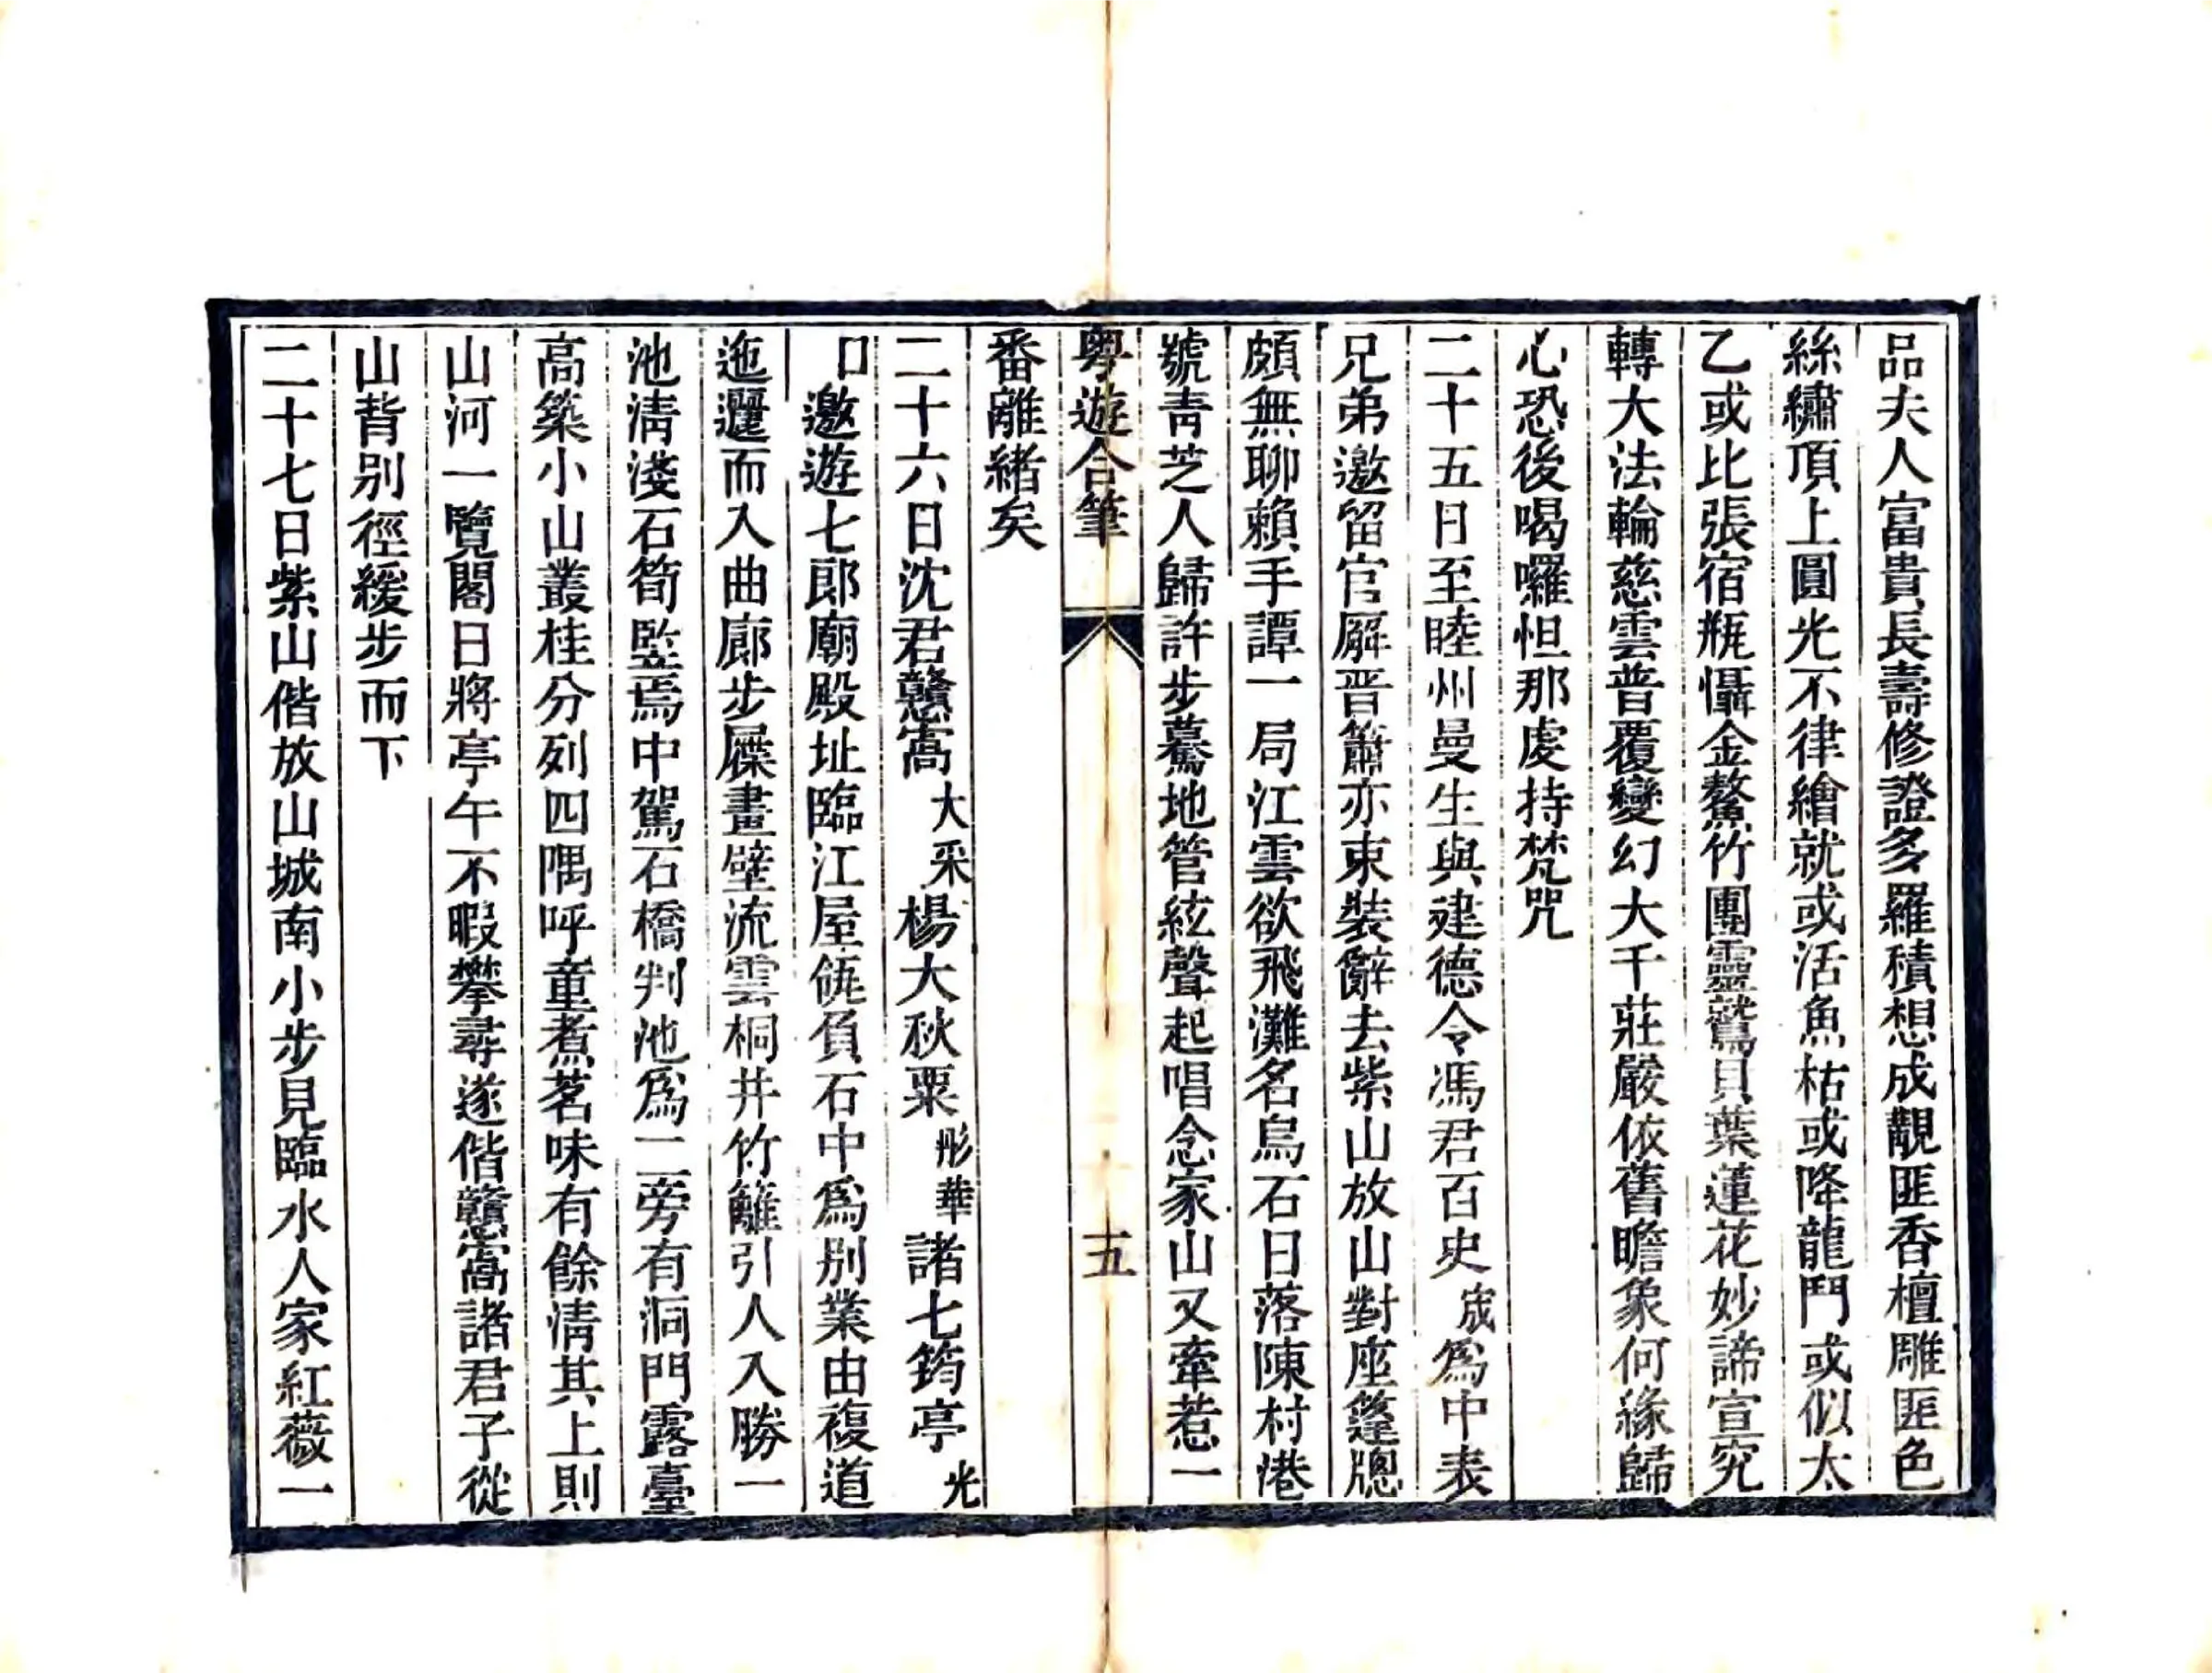 品夫人富貴長壽修證多羅積想成覯匪香檀雕匪色
絲繡頂上圓光不律繪就或活魚枯或降龍鬥或似太
乙或比張宿瓶懾金鰲竹團靈鷲貝葉蓮花妙諦宣究
轉大法輪慈雲普覆變幻大千莊嚴依舊瞻象何緣歸
心恐後喝囉怛那虔持梵咒
二十五日至睦州曼生與建德令馮君百史宬爲中表
兄弟邀留官廨晋簫亦束裝辭去紫山放山對座篷牕
頗無聊賴手譚一局江雲欲飛灘名烏石日落陳村港
號青芝人歸許步驀地管絃聲起唱念家山又牽惹一
粤遊合筆
五
番離緒矣
二十六日沈君戇窩大采楊大秋粟彤華諸七筠亭光
口邀遊七郎廟殿址臨江屋瓴負石中爲別業由複道
迤邐而入曲廊步屧畫壁流雲桐井竹籬引人入勝一
池淸淺石筍竪焉中駕石橋判池爲二旁有洞門露臺
高築小山叢桂分列四隅呼童煮茗味有餘淸其上則
山河一覽閣日將亭午不暇攀尋遂偕戇窩諸君子從
山背別徑緩步而下
二十七日紫山偕放山城南小步見臨水人家紅薇一